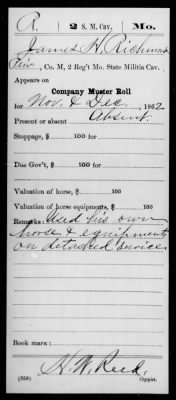 R. | 2 S. M. Cav. | Mo.
James H. Richmond
, Co. M, 2 Reg't Mo. State Militia Cav.
Appears on
Company Muster Roll
for Nov. & Dec., 1862
Present or absent Absent
Stoppage, $ 100 for
Due Gov't, $ 100 for
Valuation of horse, $ 100
Valuation of horse equipments, $ 100
Remarks: Used his own
horse & equipments
on detached service
Book mark:
H. W. Reed,
(358) Copyist.